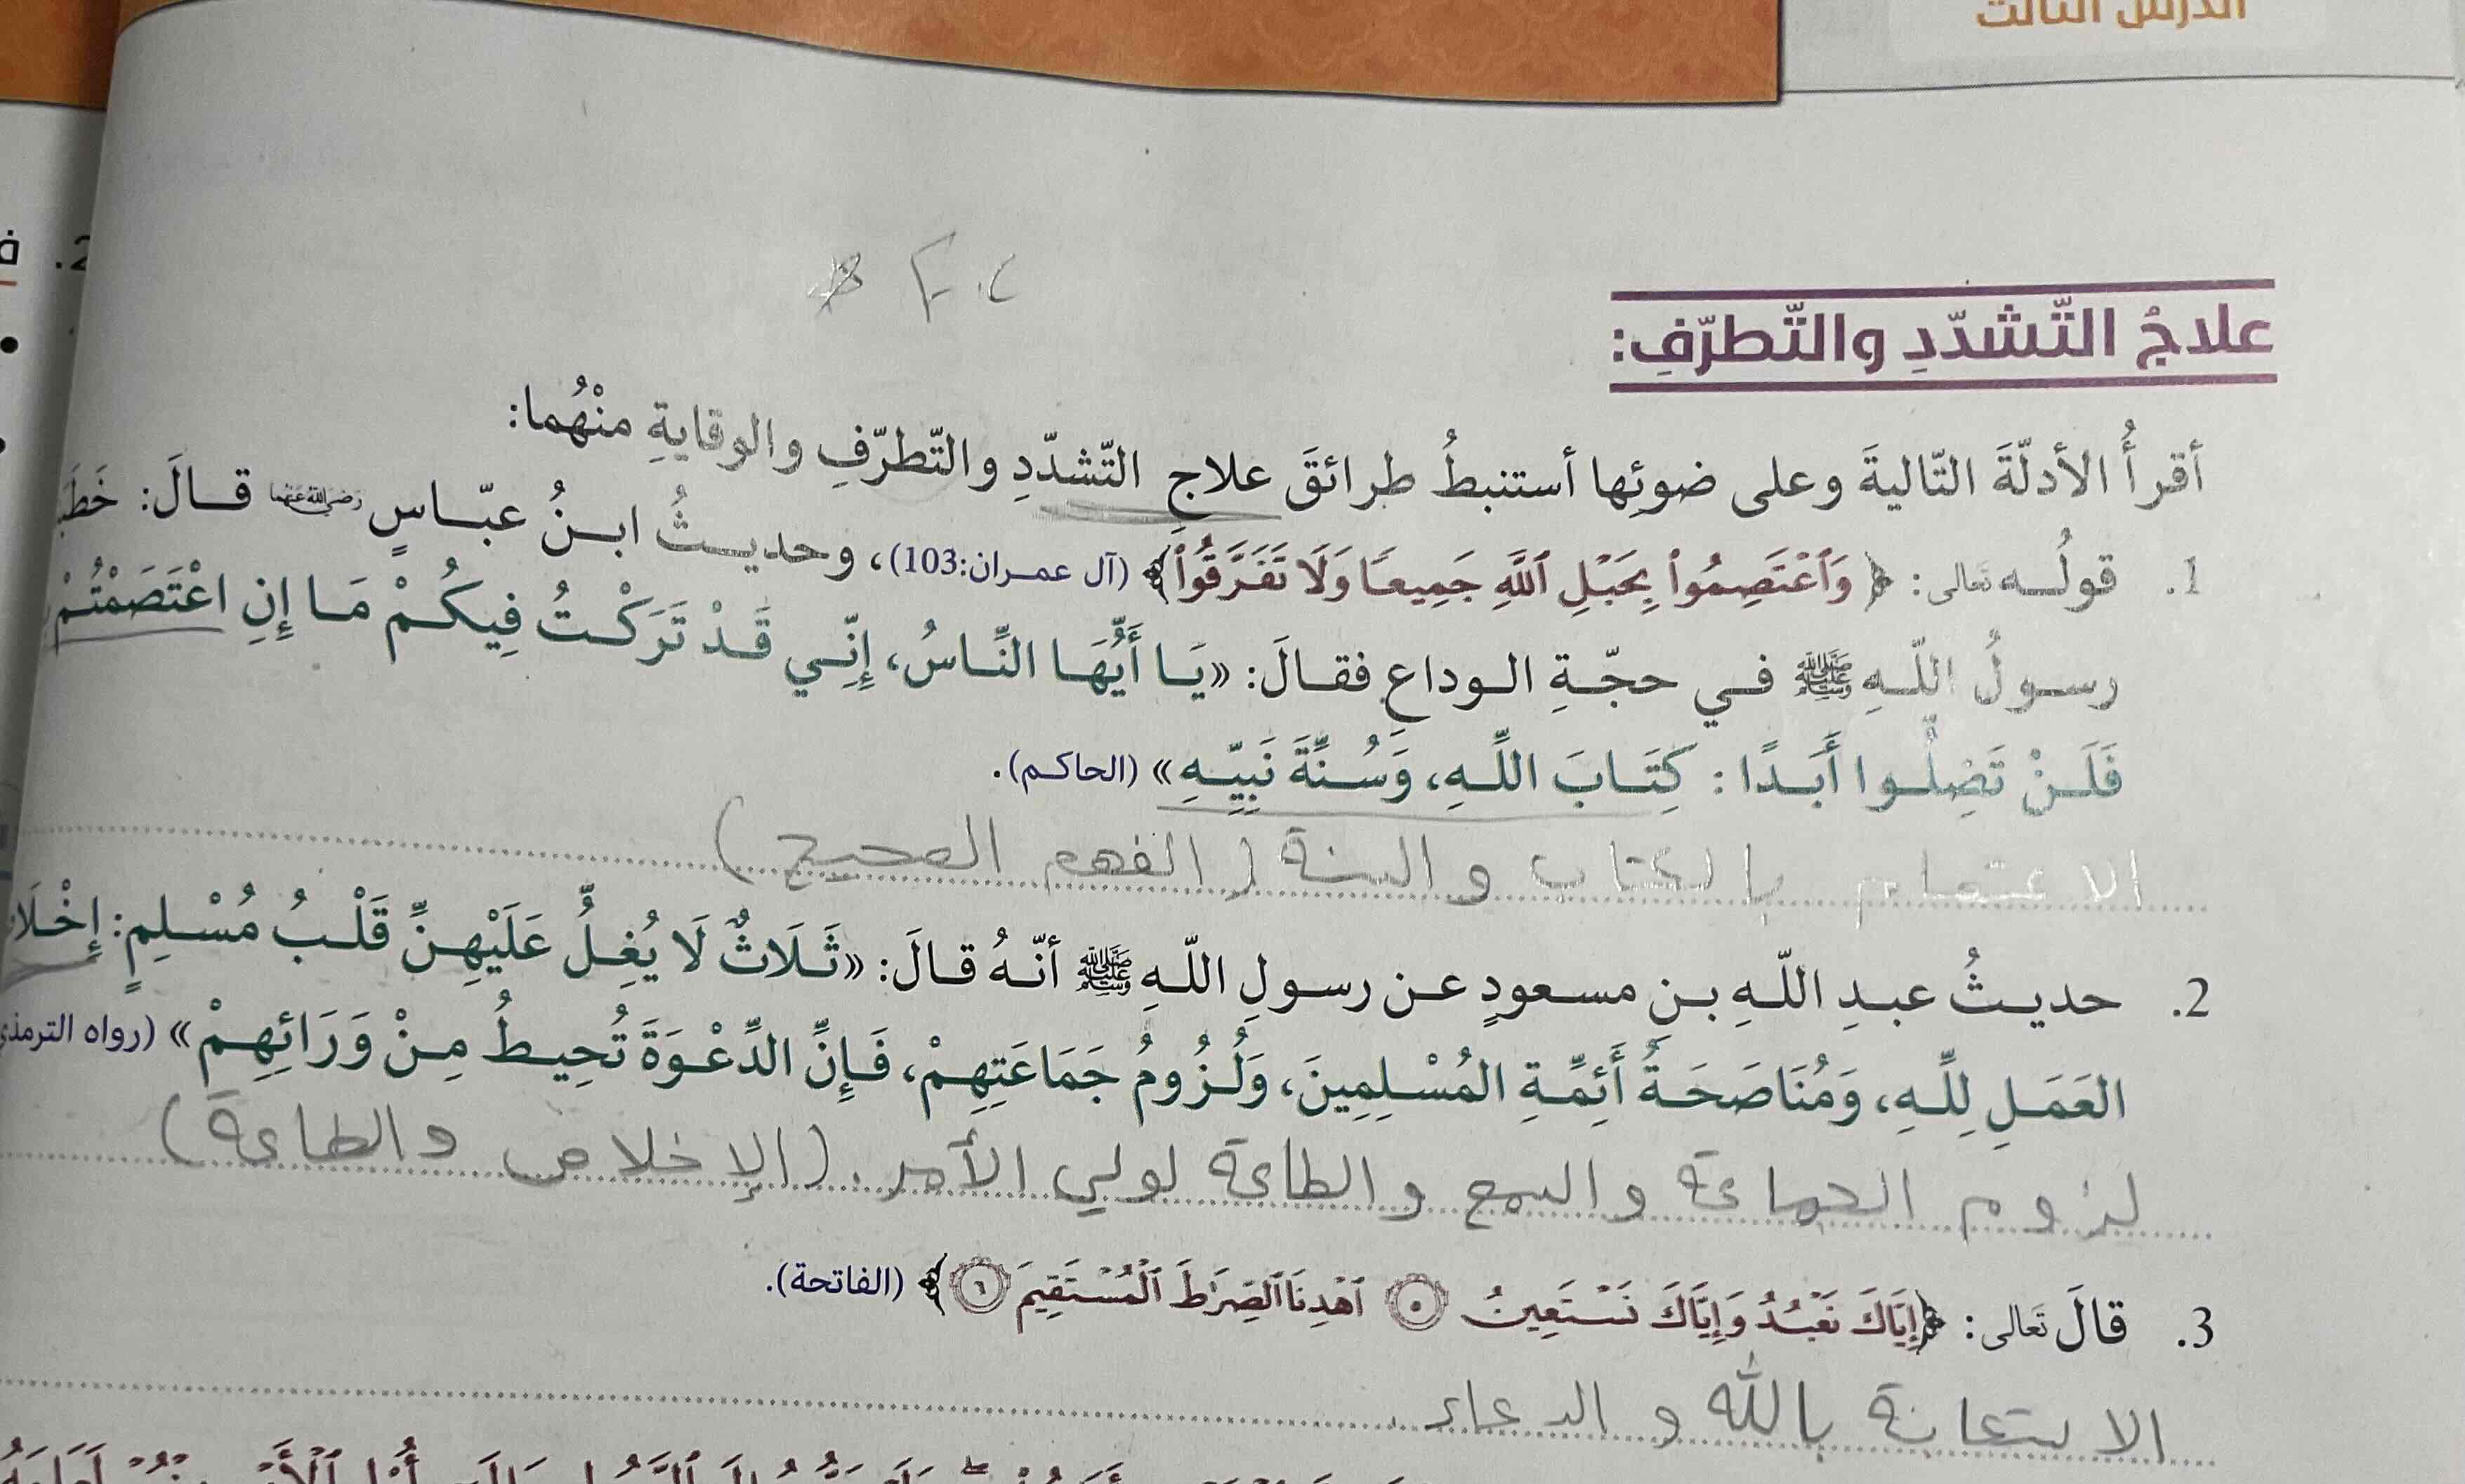 الدرس الثالث
علاجُ التّشدّدِ والتّطرّفِ:
أقرأُ الأدلّةَ التّاليةَ وعلى ضوئِها أستنبطُ طرائقَ علاجِ التّشدّدِ والتّطرّفِ والوقايةِ منْهُما:
1. قولُـه تَعَالى: ﴿ وَٱعْتَصِمُوا۟ بِحَبْلِ ٱللَّهِ جَمِيعًا وَلَا تَفَرَّقُوا۟ ﴾ (آل عمـران:103)، وحديـثُ ابـنُ عبّـاسٍ رضي الله عنهما قـالَ: خَطَبَ
رسـولُ اللّـهِ ﷺ فـي حجّـةِ الـوداعِ فقـالَ: «يَـا أَيُّهَـا النَّـاسُ، إِنِّـي قَـدْ تَرَكْـتُ فِيكُـمْ مَـا إِنِ اعْتَصَمْتُـمْ
فَلَـنْ تَضِلُّـوا أَبَـدًا: كِتَـابَ اللَّـهِ، وَسُـنَّةَ نَبِيِّـهِ» (الحاكـم).
الاعتصام بالكتاب والسنة (الفهم الصحيح)
2. حديـثُ عبـدِ اللّـهِ بـنِ مسـعودٍ عـن رسـولِ اللّـهِ ﷺ أنّـهُ قـالَ: «ثَـلَاثٌ لَا يُغِـلُّ عَلَيْهِـنَّ قَلْـبُ مُسْـلِمٍ: إِخْـلَاصُ
العَمَـلِ لِلَّـهِ، وَمُنَاصَحَـةُ أَئِمَّـةِ المُسْـلِمِينَ، وَلُـزُومُ جَمَاعَتِهِـمْ، فَـإِنَّ الدَّعْـوَةَ تُحِيـطُ مِـنْ وَرَائِهِـمْ» (رواه الترمذي
لزوم الجماعة والسمع والطاعة لولي الأمر. (الإخلاص والطاعة)
3. قالَ تَعَالى: ﴿إِيَّاكَ نَعْبُدُ وَإِيَّاكَ نَسْتَعِينُ ٥ ٱهْدِنَا ٱلصِّرَٰطَ ٱلْمُسْتَقِيمَ ٦﴾ (الفاتحة).
الاستعانة بالله والدعاء.